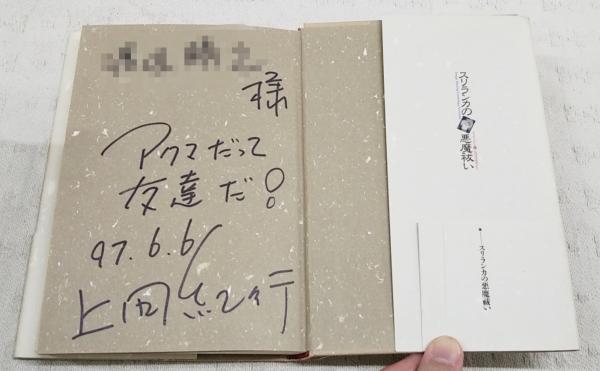 様
アクマだって
友達だ!
97.6.6
上田紀行
スリランカの
悪魔祓い
スリランカの悪魔祓い